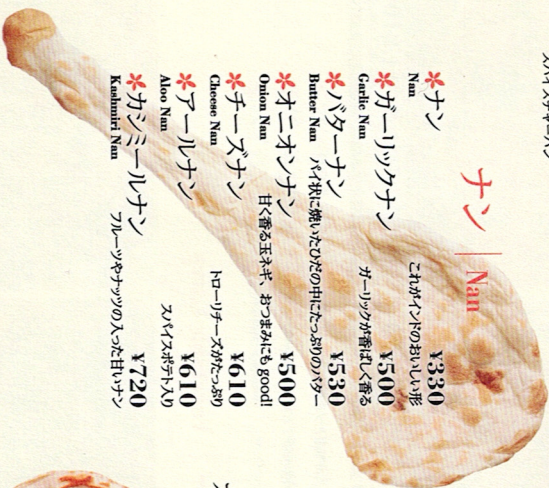 スパイスチャーハン
ナン | Nan
*ナン ¥330
Nan これがインドのおいしい形
*ガーリックナン ¥500
Garlic Nan ガーリックが香ばしく香る
*バターナン ¥530
Butter Nan パイ状に焼いたひだの中にたっぷりのバター
*オニオンナン ¥500
Onion Nan 甘く香る玉ネギ、おつまみにもgood!
*チーズナン ¥610
Cheese Nan トローリチーズがたっぷり
*アールナン ¥610
Aloo Nan スパイスポテト入り
*カシミールナン ¥720
Kashmiri Nan フルーツやナッツの入った甘いナン